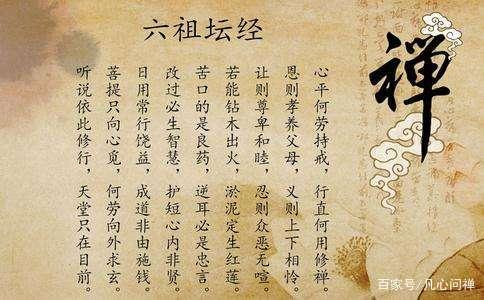 六祖坛经
禅
心平何劳持戒，行直何用修禅。
恩则孝养父母，义则上下相怜。
让则尊卑和睦，忍则众恶无喧。
若能钻木出火，淤泥定生红莲。
苦口的是良药，逆耳必是忠言。
改过必生智慧，护短心内非贤。
日用常行饶益，成道非由施钱。
菩提只向心觅，何劳向外求玄。
听说依此修行，天堂只在目前。
百家号/凡心问禅